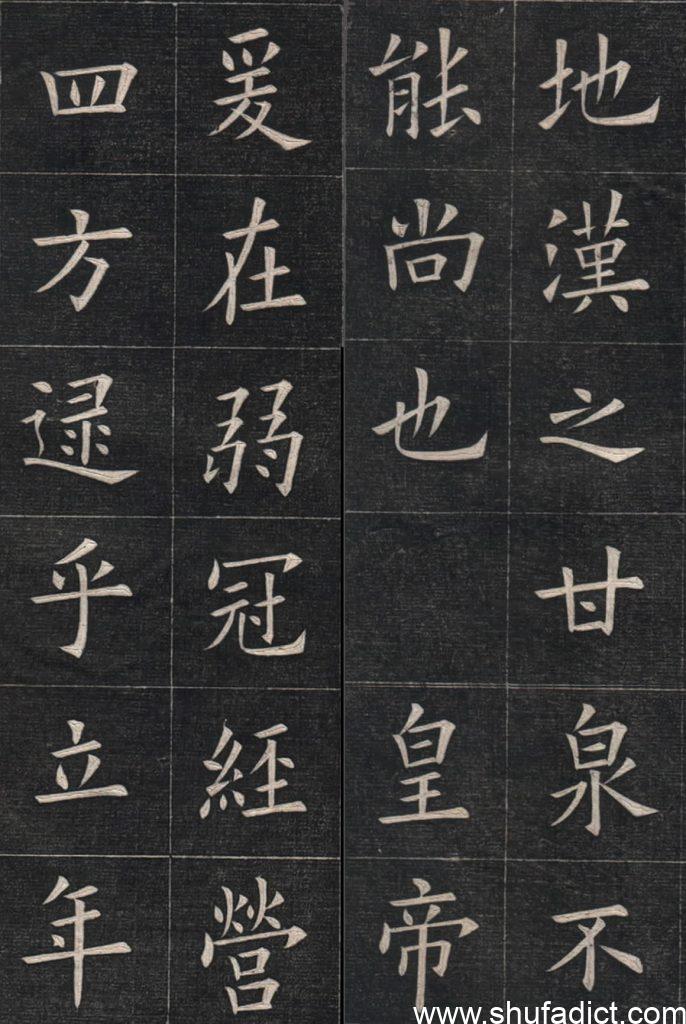 地漢之甘泉不
能尚也 皇帝
爰在弱冠經營
四方逯乎立年
www.shufadict.com